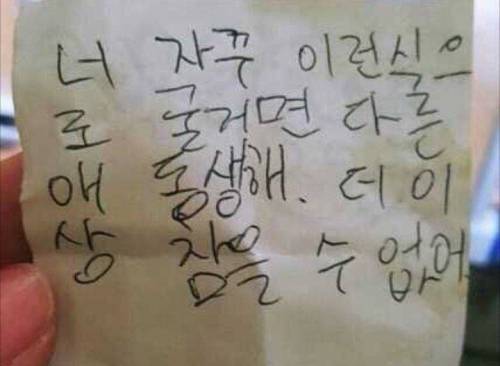 너 자꾸 이런식으
로 놀거면 다른
애 동생해. 더 이
상 참을 수 없어.